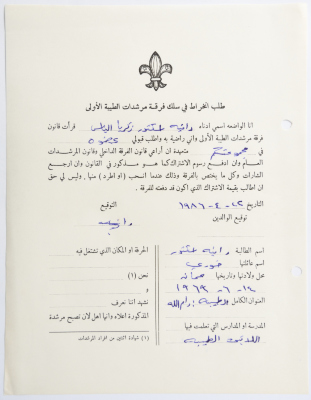 طلب انخراط في سلك فرقة مرشدات الطيبة الأولى
انا الواضعه اسمي ادناه رانية زكريا قرأت قانون
فرقة مرشدات الطيبة الأولى وانني راضية به واطلب قبولي عضوه
في متعهدة ان أراعي قانون الفرقة الداخلي وقانون المرشدات
العام وان ادفع رسوم الاشتراك كما هو مذكور في القانون وان ارجع
الشارات وكل ما يختص بالفرقة وذلك عندما انسحب (او اطرد) منها , وليس لي حق
ان اطالب بقيمة الاشتراك الذي اكون قد دفعته للفرقة .
التاريخ ١٢-٤-١٩٨٦ التوقيع
توقيع الوالدين رانية
اسم الطالبة رانية
اسم عائلتها خورية
محل ولادتها وتاريخها عمان
١٢-٦-١٩٦٩
العنوان الكامل الطيبة ; رام الله
المدرسة او المدارس التي تعلمت فيها
اللاتين الطيبة
الحرفة او المكان الذي تشتغل فيه
نحن (١)
و
نشهد اننا نعرف
المذكورة اعلاه وانها اهل لان تصبح مرشدة
(١) شهادة اثنين من افراد المرشدات